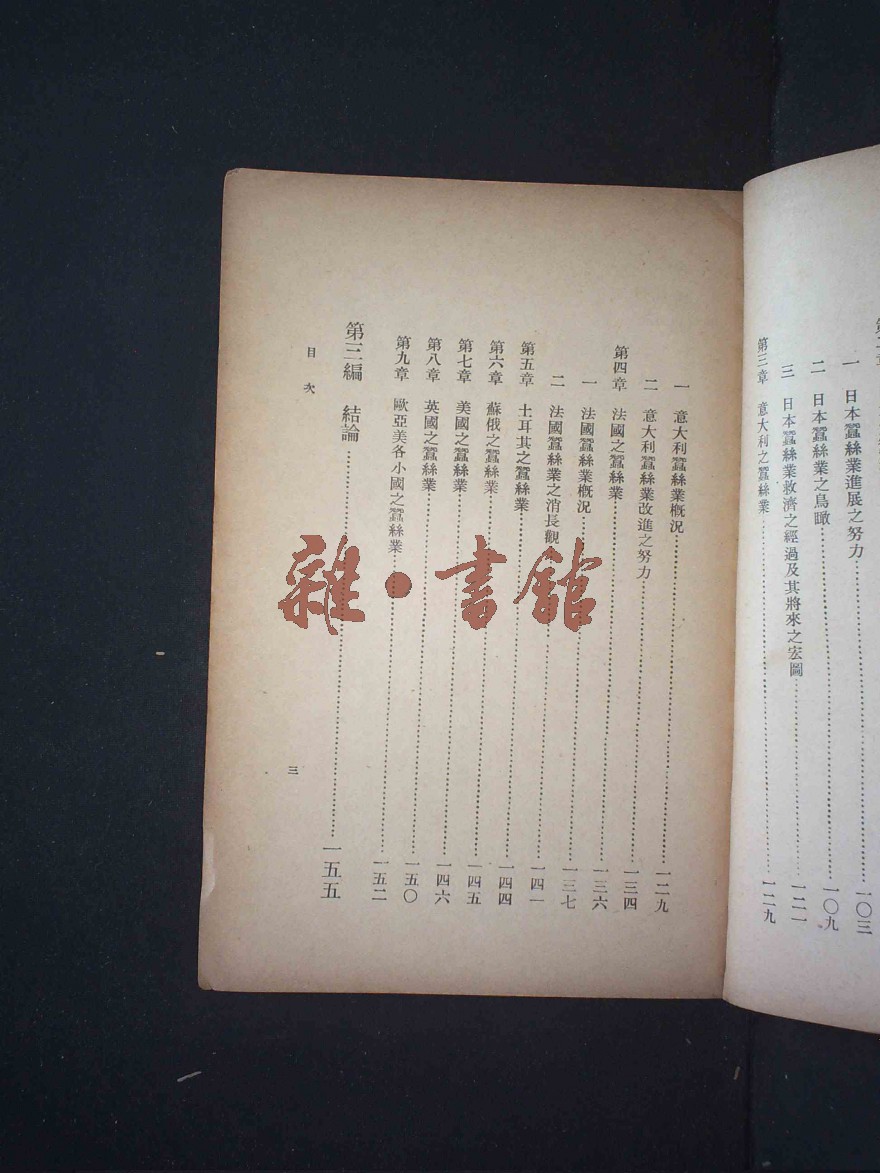 一 日本蠶絲業進展之努力………一〇三
二 日本蠶絲業之鳥瞰………一〇九
三 日本蠶絲業救濟之經過及其將來之宏圖………一二一
第三章 意大利之蠶絲業………一二九
一 意大利蠶絲業概況………一二九
二 意大利蠶絲業改進之努力………一三四
第四章 法國之蠶絲業………一三六
一 法國蠶絲業概況………一三七
二 法國蠶絲業之消長觀………一四一
第五章 土耳其之蠶絲業………一四四
第六章 蘇俄之蠶絲業………一四五
第七章 美國之蠶絲業………一四六
第八章 英國之蠶絲業………一五〇
第九章 歐亞美各小國之蠶絲業………一五二
第三編 結論………一五五
目次
三
雜·書館